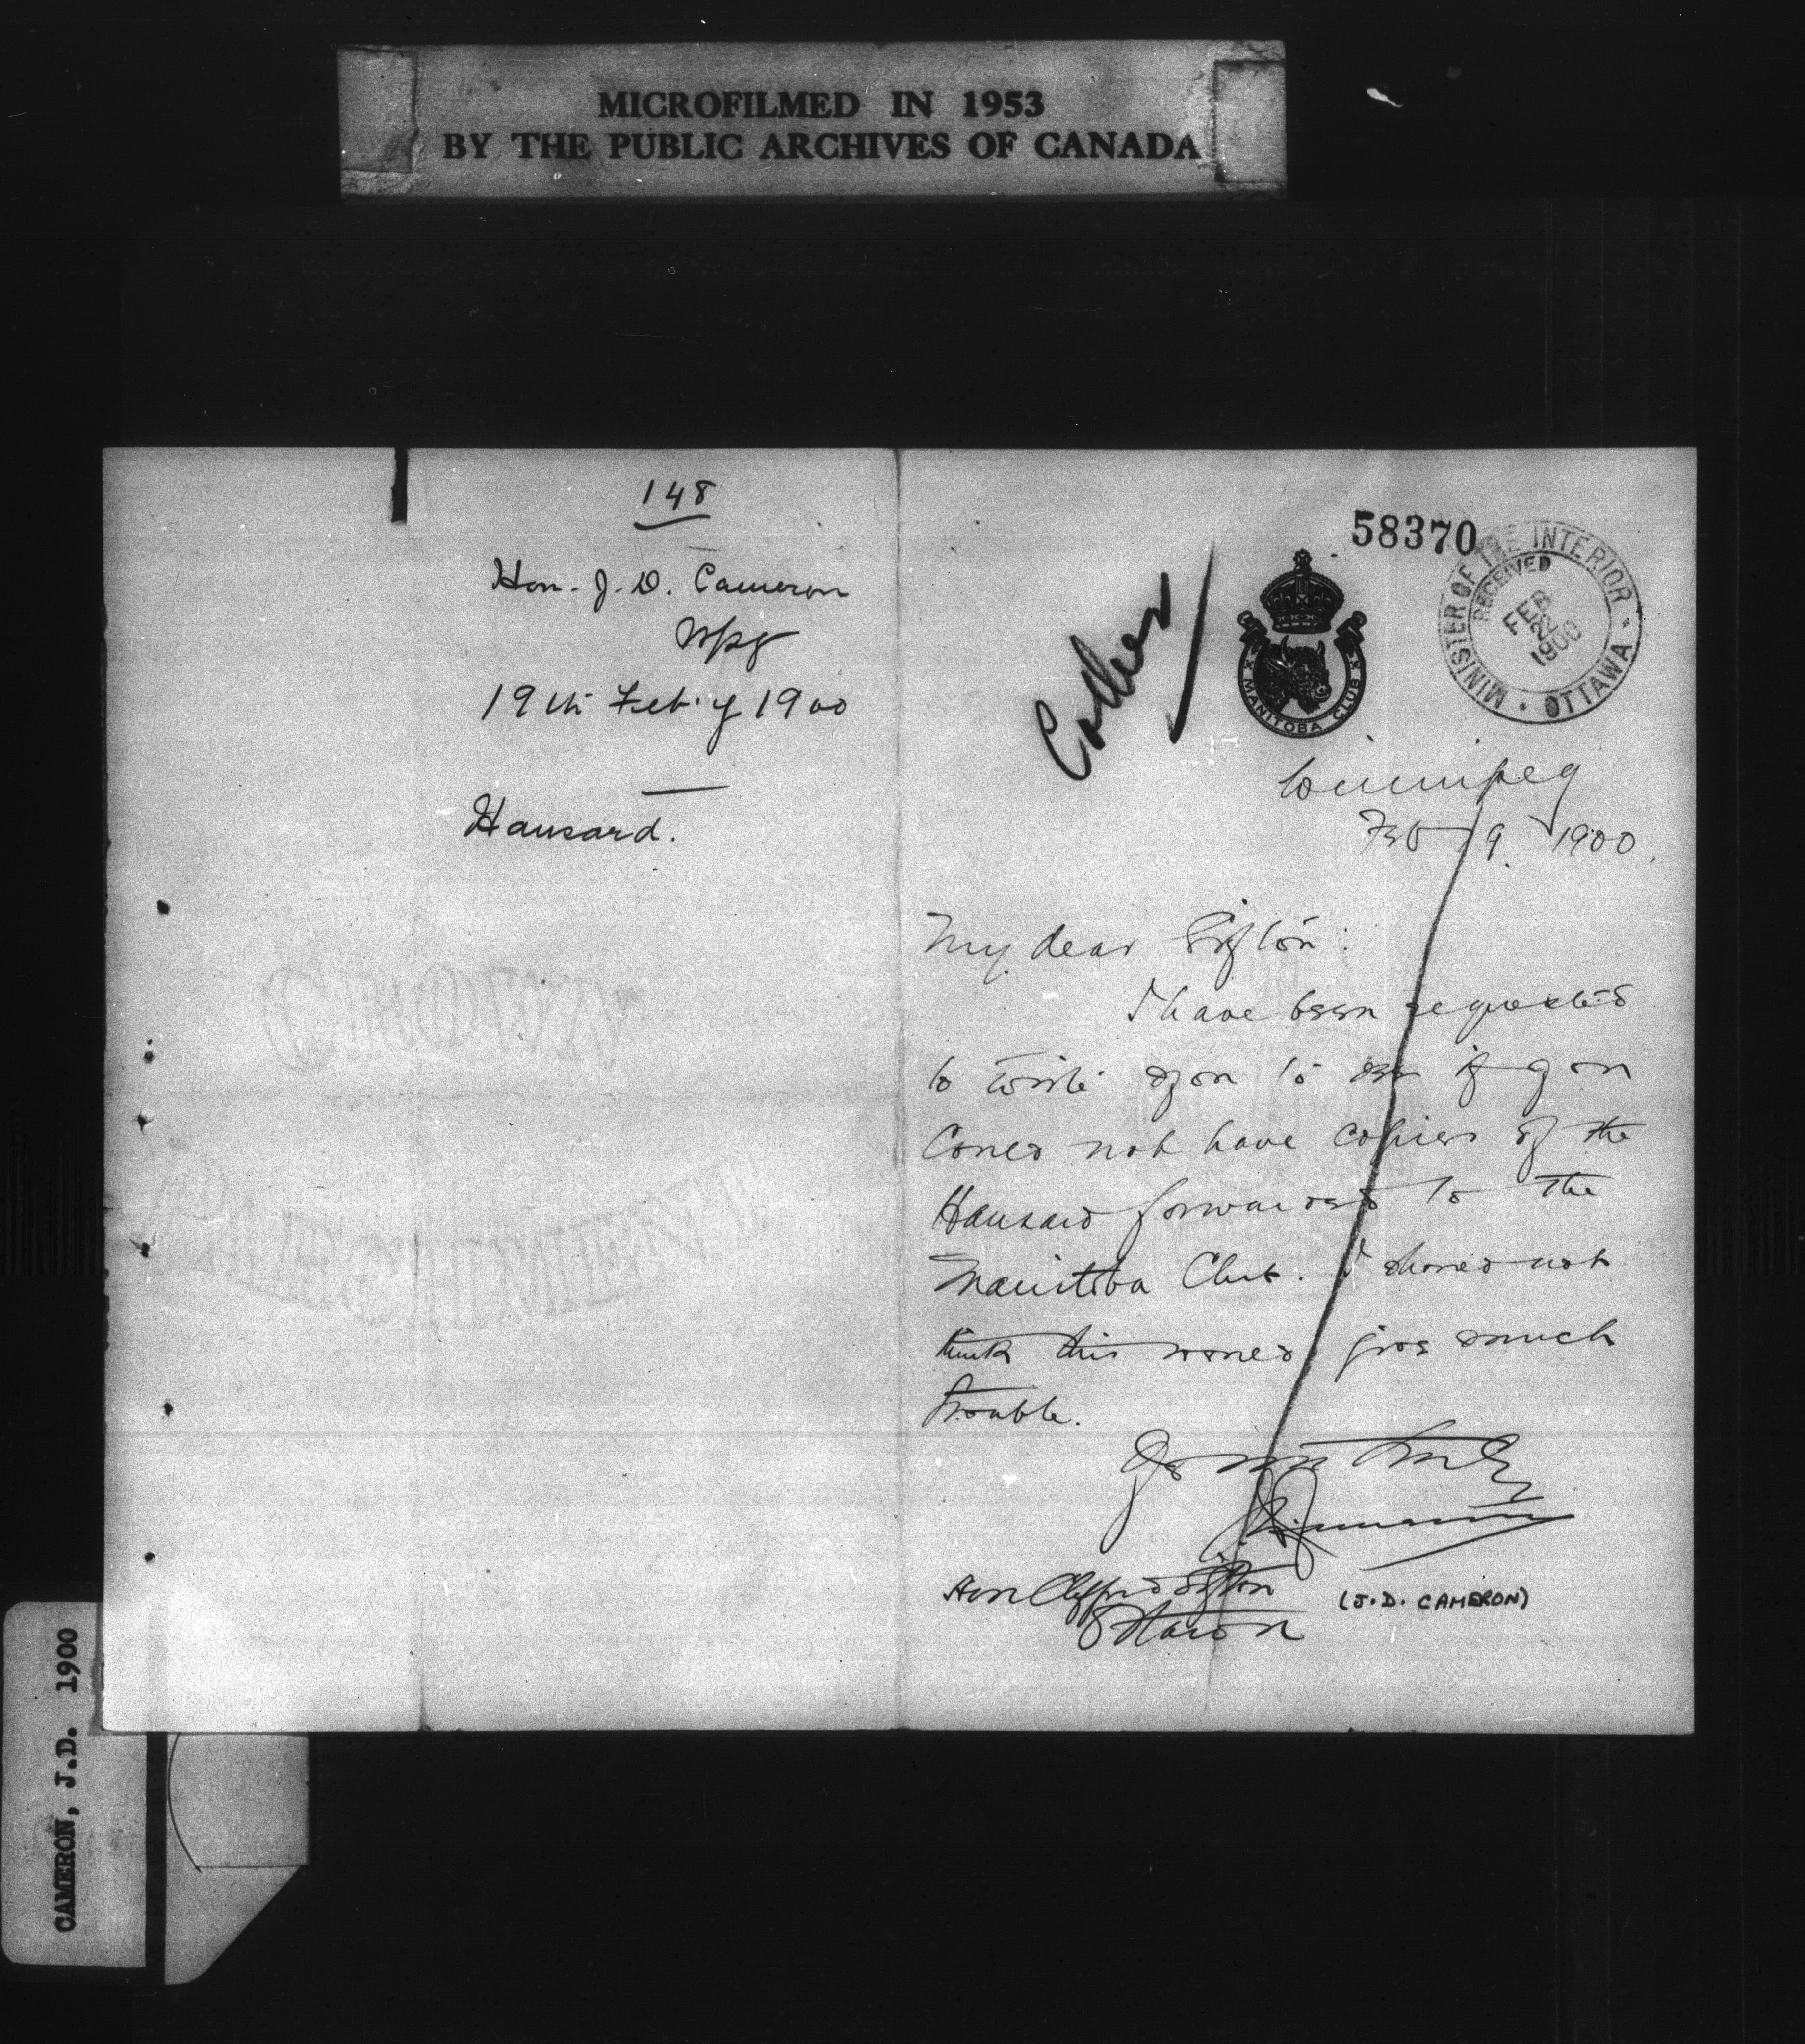 MICROFILMED IN 1953
BY THE PUBLIC ARCHIVES OF CANADA
148
Hon. J. D. Cameron
Wpg
19th Feb'y 1900
Hansard.
58370
MINISTER OF THE INTERIOR
RECEIVED
FEB
22
1900
OTTAWA
MANITOBA CLUB
Winnipeg
Feb 19. 1900.
My dear Sifton:
I have been requested
to write you to see if you
could not have copies of the
Hansard forwarded to the
Manitoba Club. I should not
think this would give much
trouble.
Yours truly
Hon Clifford Sifton
Ottawa
(J.D. CAMERON)
CAMERON, J.D. 1900